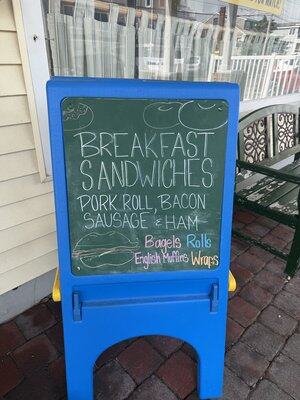 BREAKFAST
SANDWICHES
PORK ROLL, BACON
SAUSAGE & HAM
Bagels Rolls
English Muffins Wraps